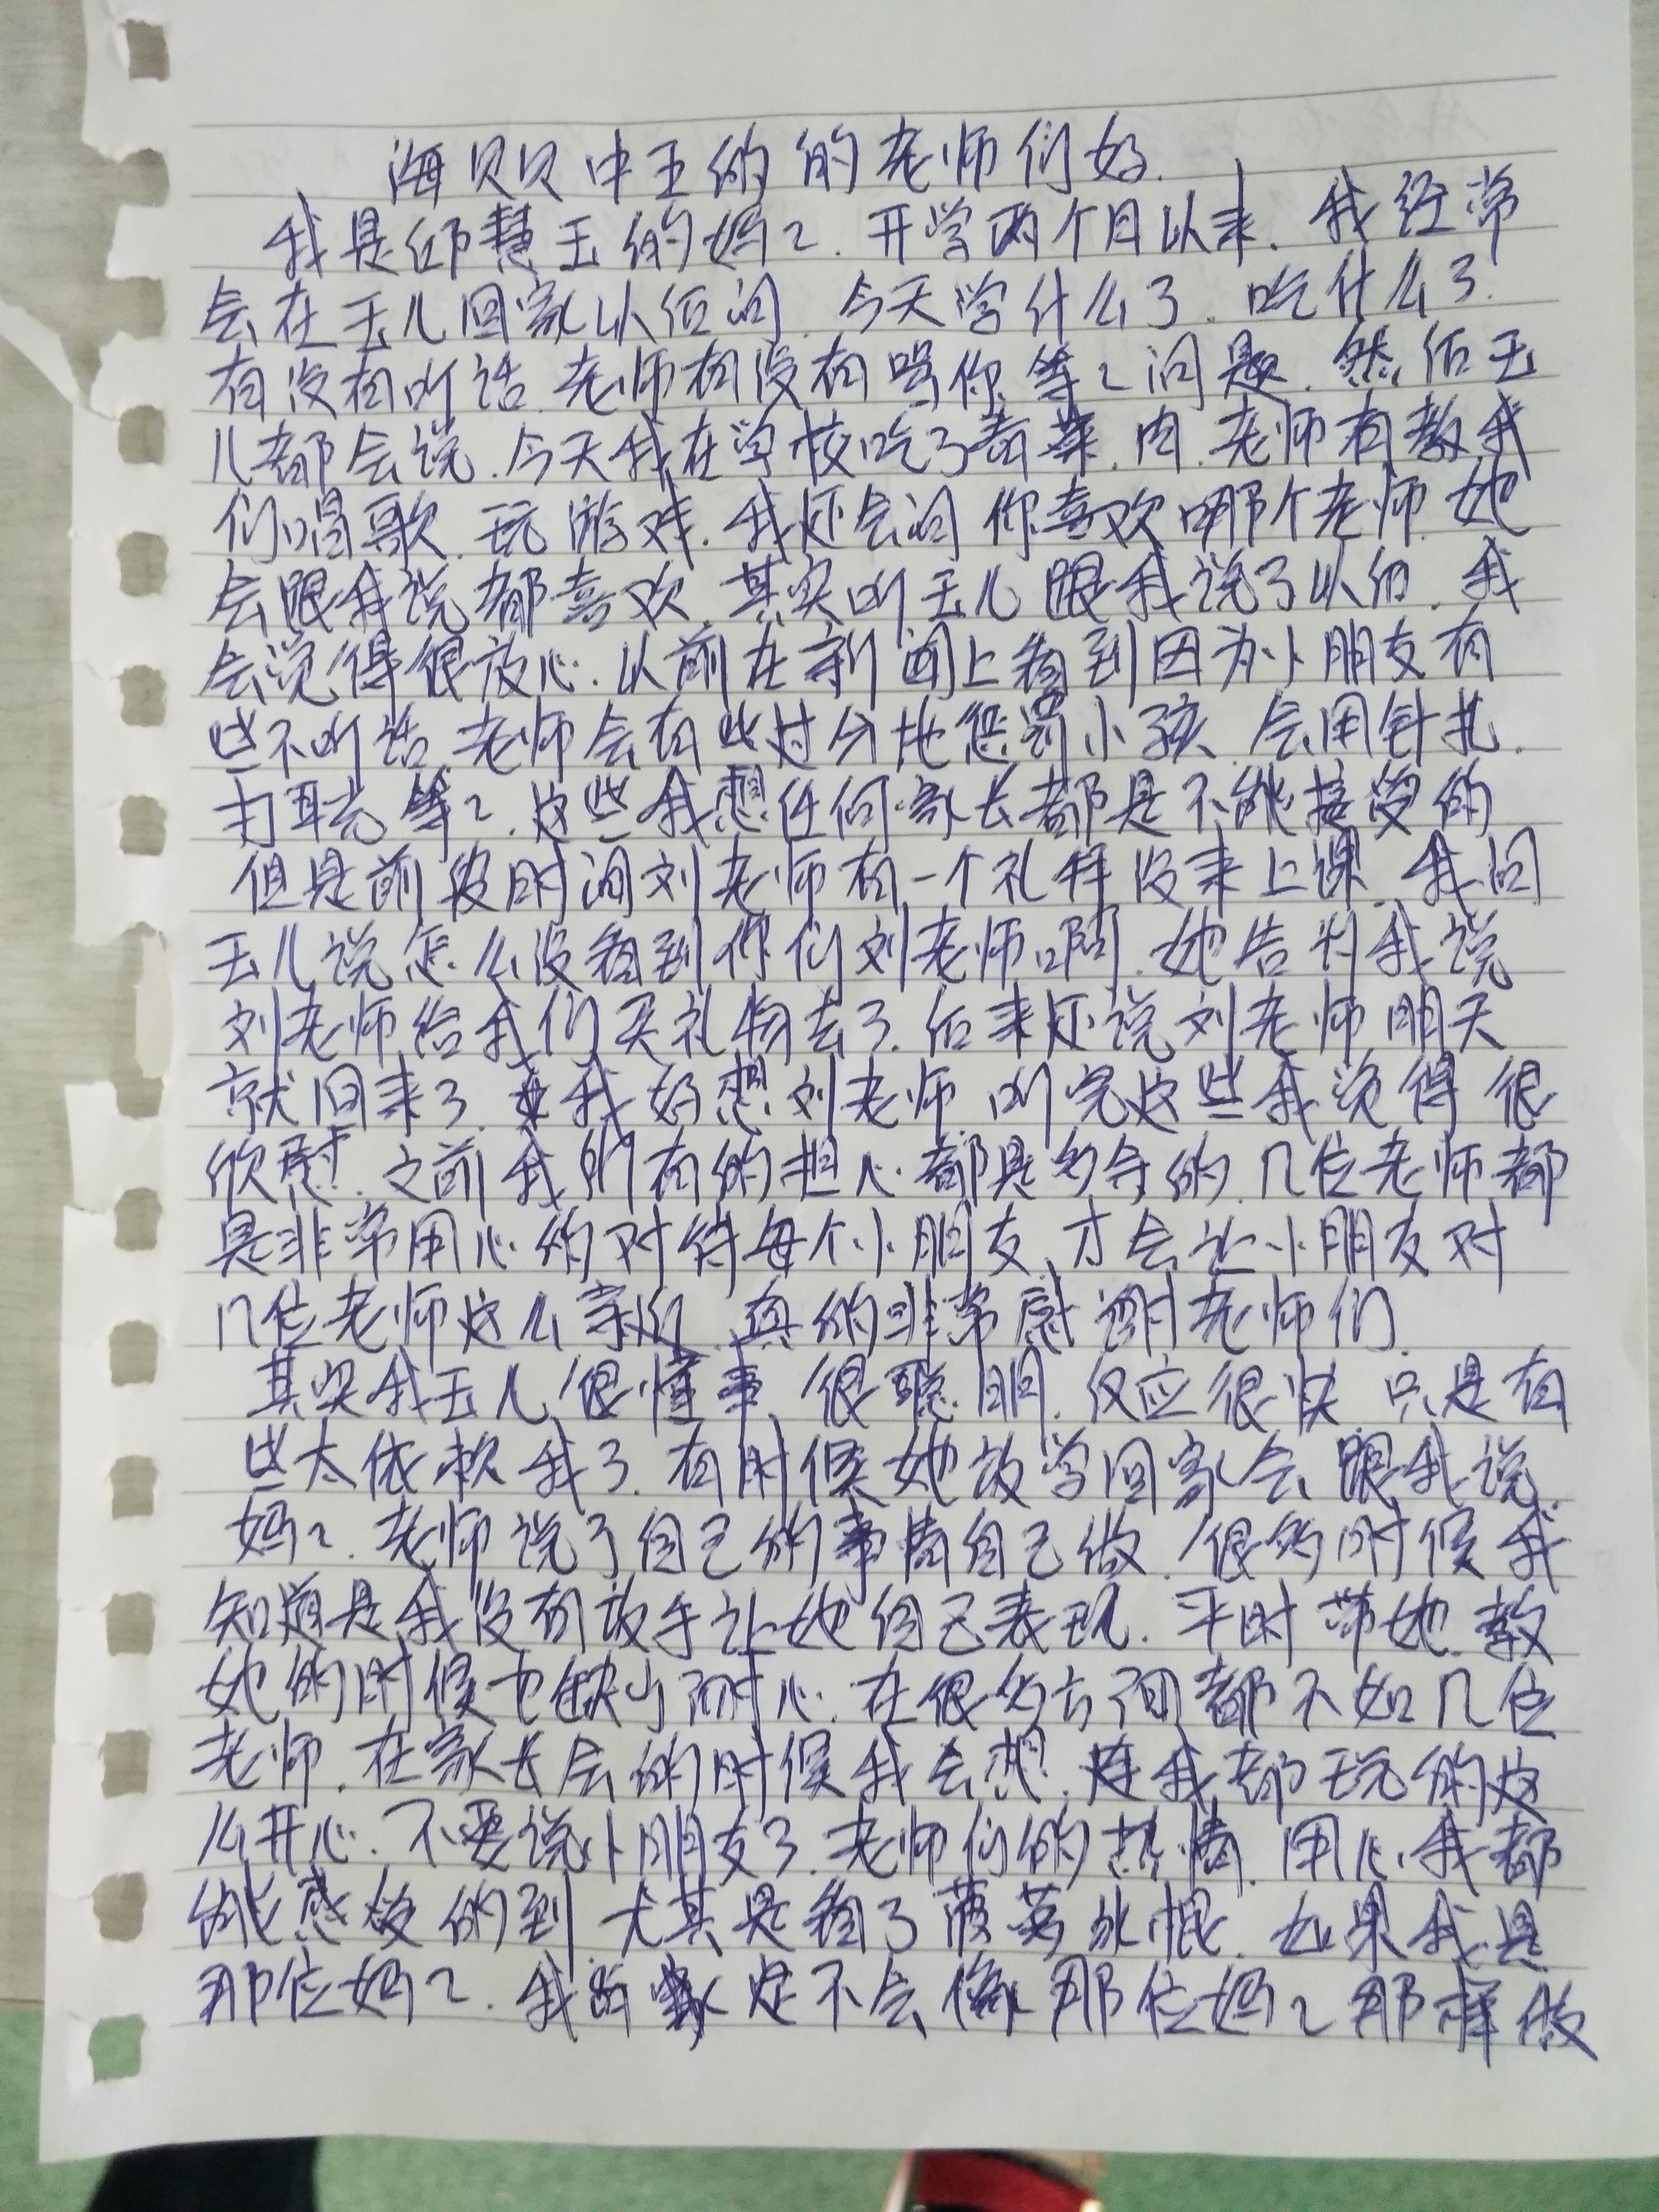 海贝贝中五的的老师们好.
我是邱慧玉的妈々.开学两个月以来.我经常
会在玉儿回家以后问.今天学什么了.吃什么了.
有没有听话.老师有没有骂你等々问题.然后玉
儿都会说.今天我在学校吃了青菜.肉.老师有教我
们唱歌.玩游戏.我还会问你喜欢哪个老师.她
会跟我说都喜欢.其实听玉儿跟我说了以后.我
会觉得很放心.以前在新闻上看到因为小朋友有
些不听话.老师会有些过分地惩罚小孩.会用针扎.
打耳光等々.这些我想任何家长都是不能接受的
但是前段时间刘老师有一个礼拜没来上课.我问
玉儿说怎么没看到你们刘老师啊.她告诉我说
刘老师给我们买礼物去了.后来还说刘老师明天
就回来了.我好想刘老师.听完这些我觉得很
欣慰.之前我所有的担心都是多余的.几位老师都
是非常用心的对待每个小朋友.才会让小朋友对
几位老师这么亲近.真的非常感谢老师们.
其实我玉儿很懂事.很聪明.反应很快.只是有
些太依赖我了.有时候她放学回家会跟我说.
妈々.老师说了自己的事情自己做.很多时候我
知道是我没有放手让她自己表现.平时带她.教
她的时候也缺少耐心.在很多方面都不如几位
老师.在家长会的时候我会想.连我都玩的这
么开心.不要说小朋友了.老师们的热情.用心.我都
能感受的到.尤其是看了菠萝冰棍.如果我是
那位妈々.我是不会像那位妈々那样做